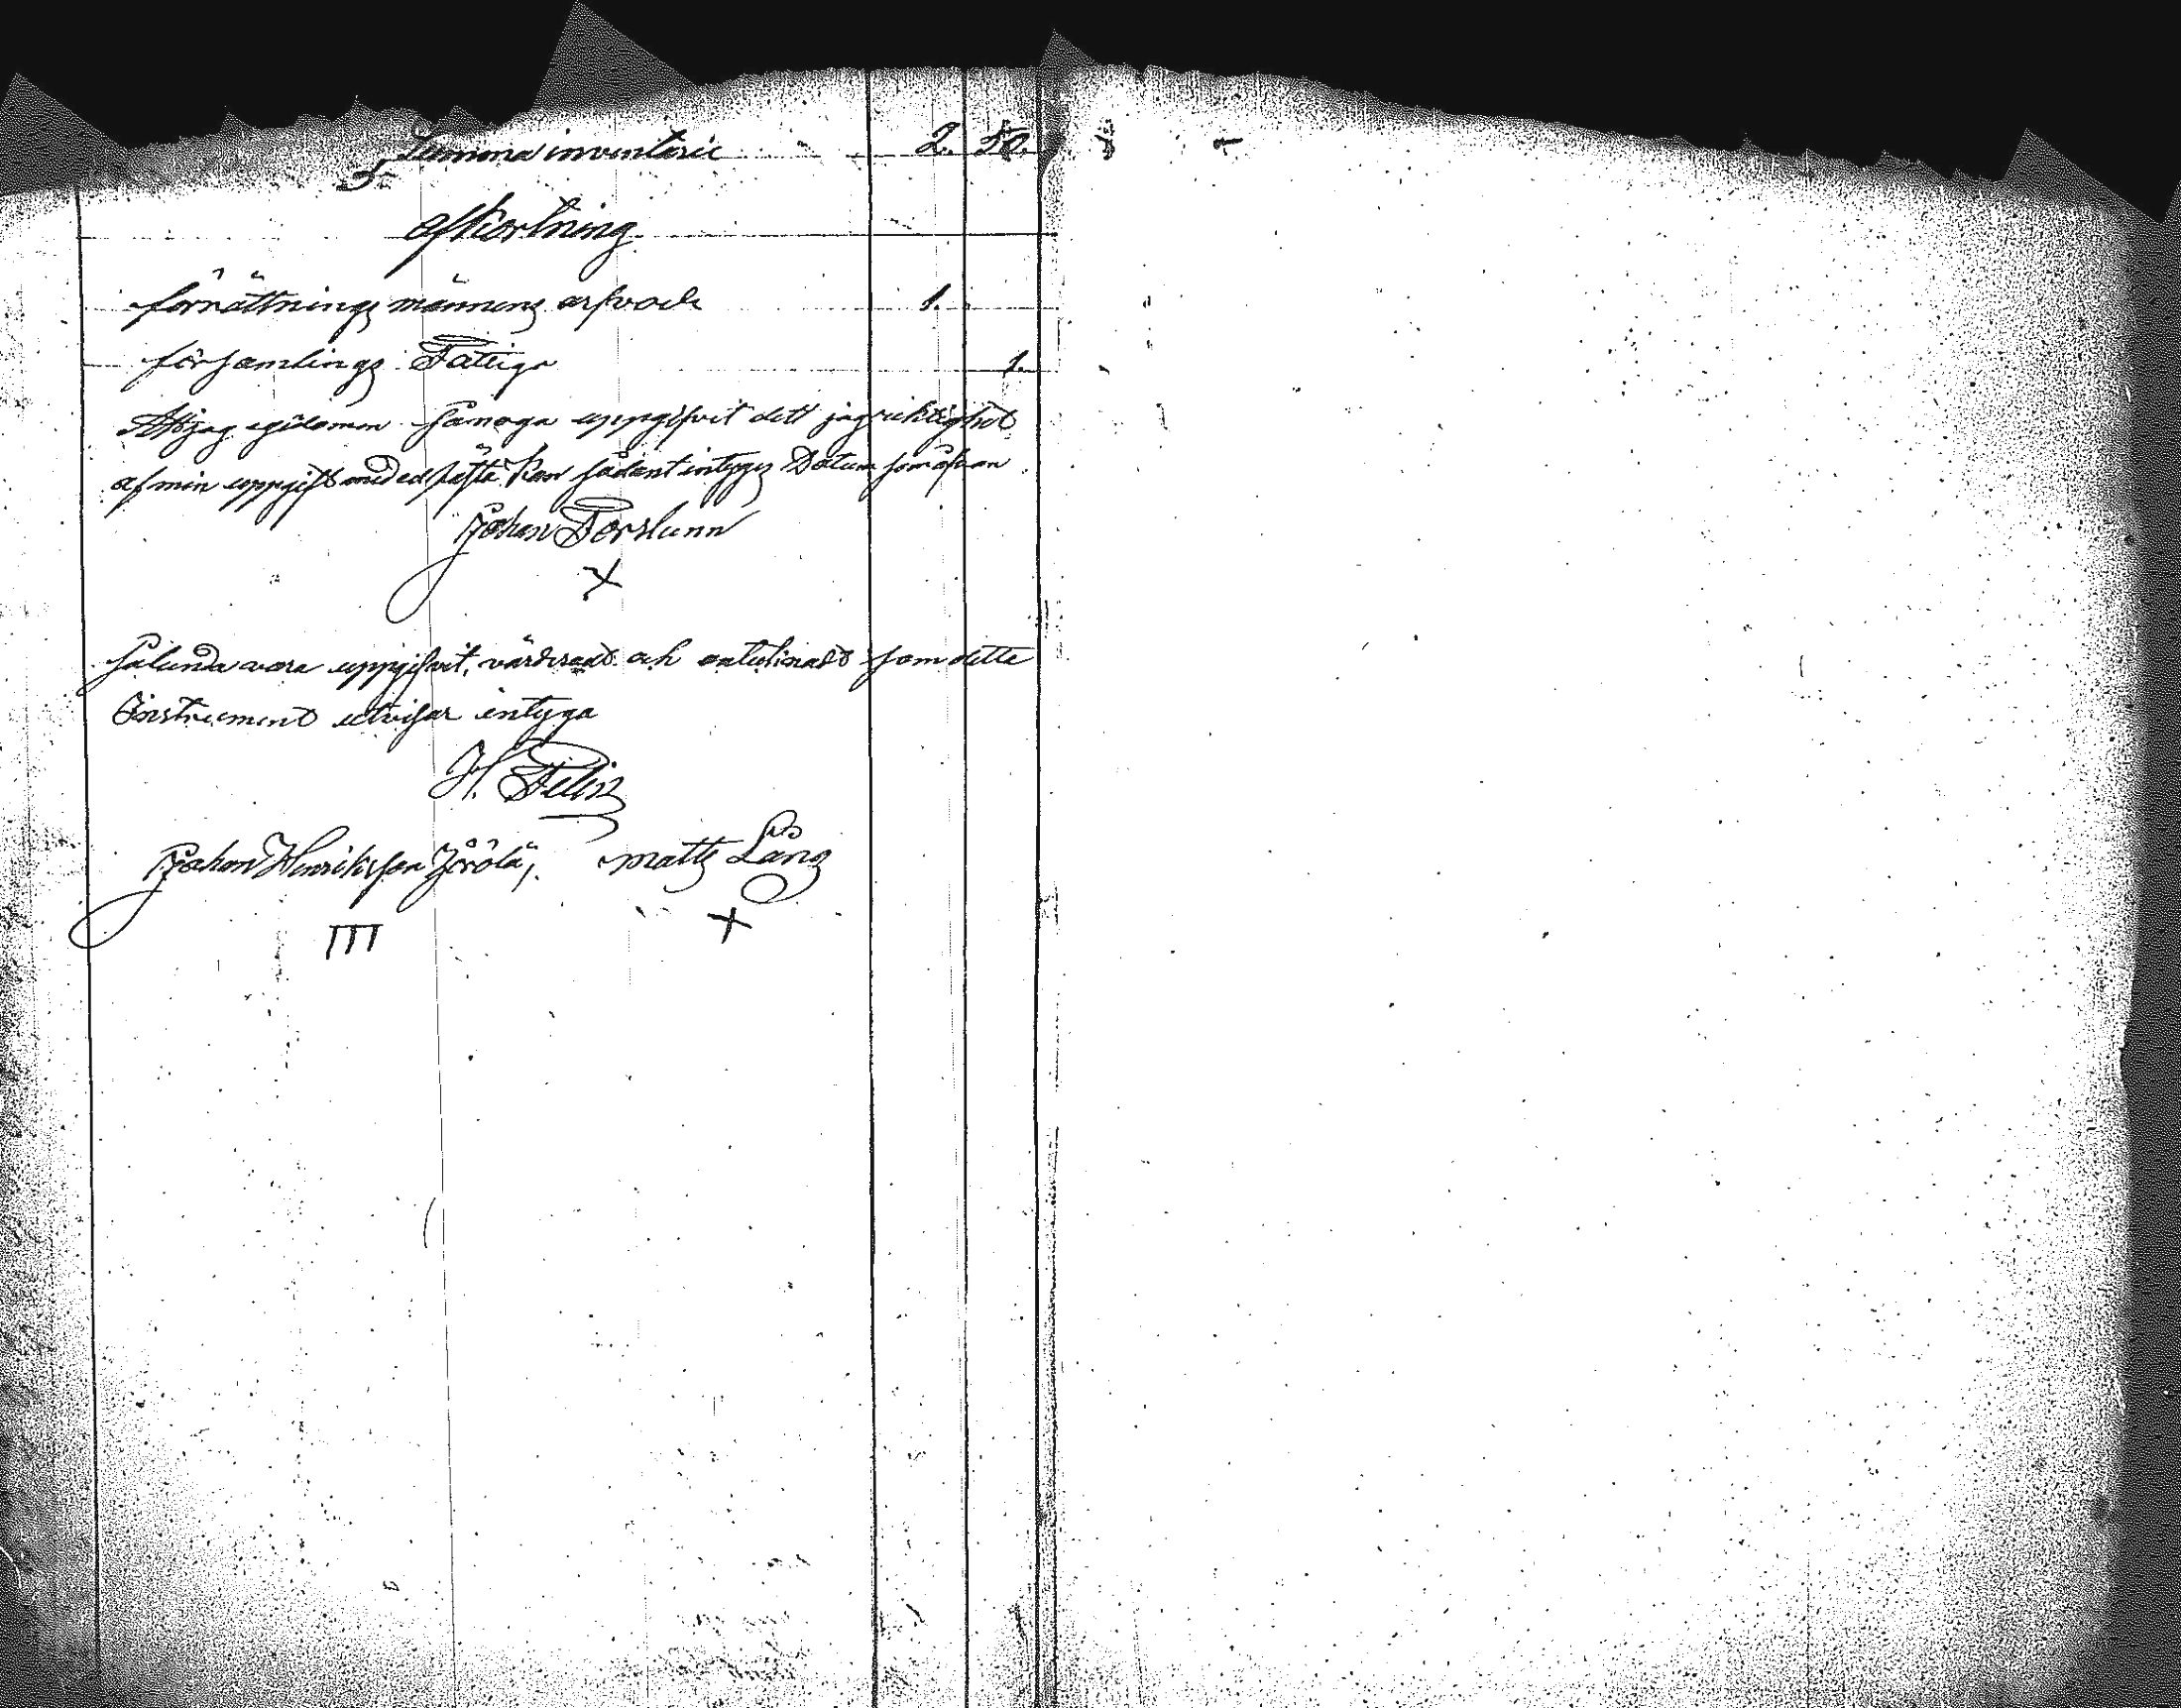 Summa inventarie 2. 50.
afkortning
förrättnings männens arfvode 1.
församlings Fattiga 1.
Att jag egidomen samoga uppgifvit dett jag riktighet
af min uppgift med ed fästa kan sådant intygas Datum som ofvan
Johan Forslunn
X
Sålunda vara uppgifvit, värderadt och antecknadt som detta
Instrument utvisar intyga
H. Felin
Johan Henriksson Jörölä, matts Lång
III X